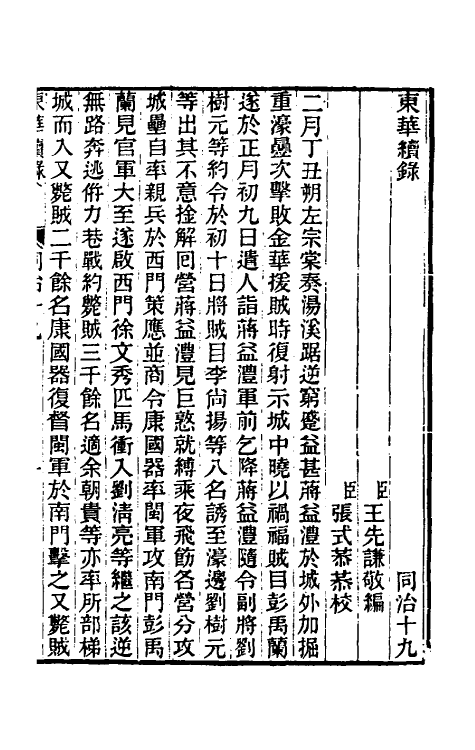 東華續錄 同治十九
臣王先謙敬編
臣張式恭恭校
二月丁丑朔左宗棠奏湯溪踞逆窮蹙益甚蔣益澧於城外加掘
重濠壘次擊敗金華援賊時復射示城中曉以禍福賊目彭禹蘭
遂於正月初九日遣人詣蔣益澧軍前乞降蔣益澧隨令副將劉
樹元等約令於初十日將賊目李尚揚等八名誘至濠邊劉樹元
等出其不意捦解回營蔣益澧見巨憝就縛乘夜飛飭各營分攻
城壘自率親兵於西門策應並商令康國器率閩軍攻南門彭禹
蘭見官軍大至遂啟西門徐文秀匹馬衝入劉清亮等繼之該逆
無路奔逃併力巷戰約斃賊三千餘名適余朝貴等亦率所部梯
城而入又斃賊二千餘名康國器復督閩軍於南門擊之又斃賊